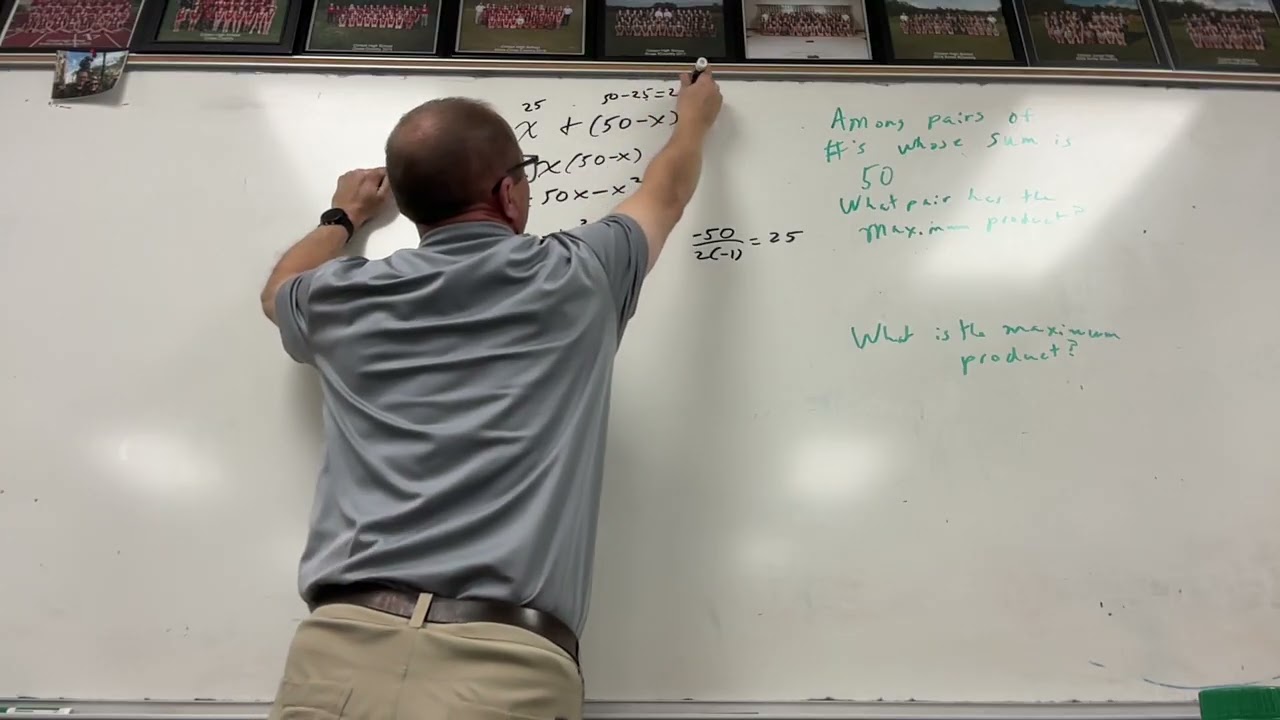 25
50-25=2
x + (50-x)
x(50-x)
50x-x²
2
-50
2(-1)
= 25
Among pairs of
#'s whose sum is
50
What pair has the
maximum product?
What is the maximum
product?